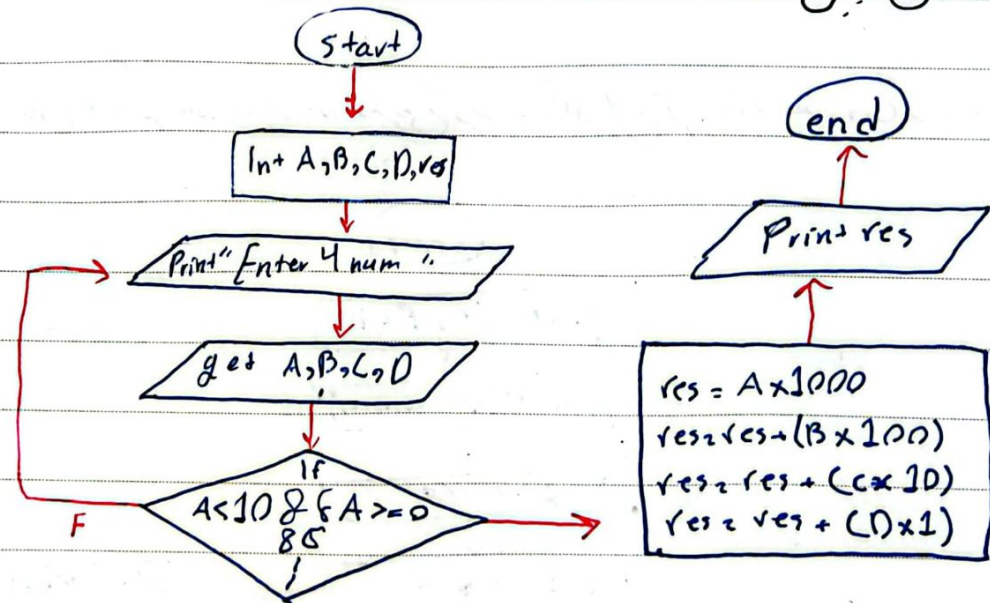 start
Int A,B,C,D,res
Print" Enter 4 num "
get A,B,C,D
If
A<10 && A>=0
&&
F
res = A×1000
res=res+(B×100)
res= res + (C×10)
res= res + (D×1)
Print res
end